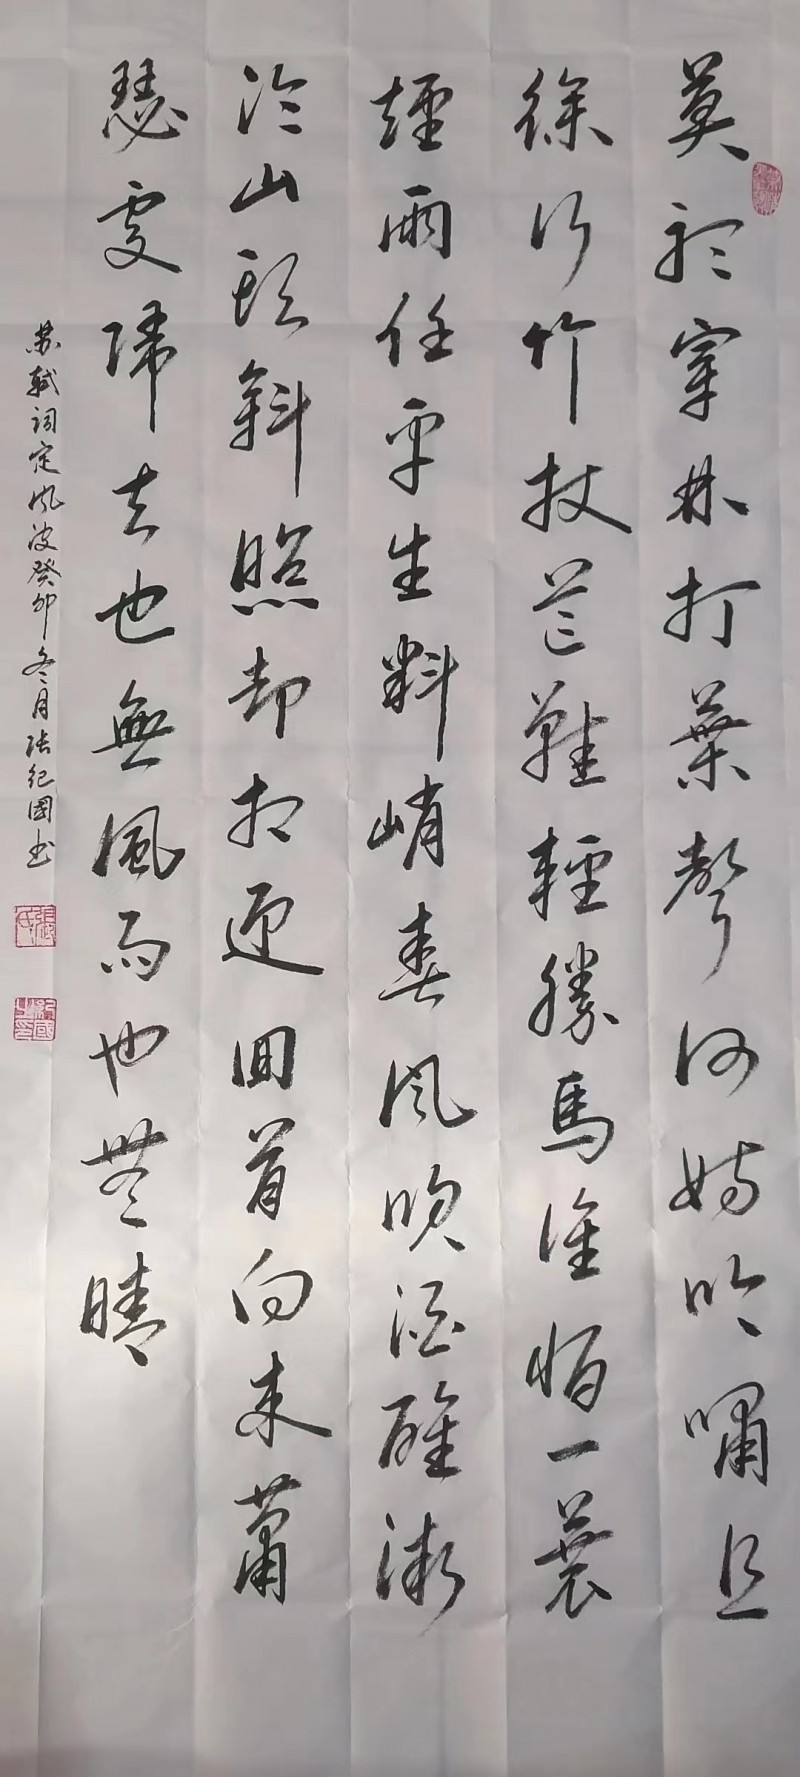 莫聽穿林打葉聲何妨吟嘯且
徐行竹杖芒鞋輕勝馬誰怕一蓑
煙雨任平生料峭春风吹酒醒微
冷山頭斜照却相迎回首向来蕭
瑟處歸去也無風雨也無晴
苏軾詞定风波癸卯冬月张紀國书
張氏